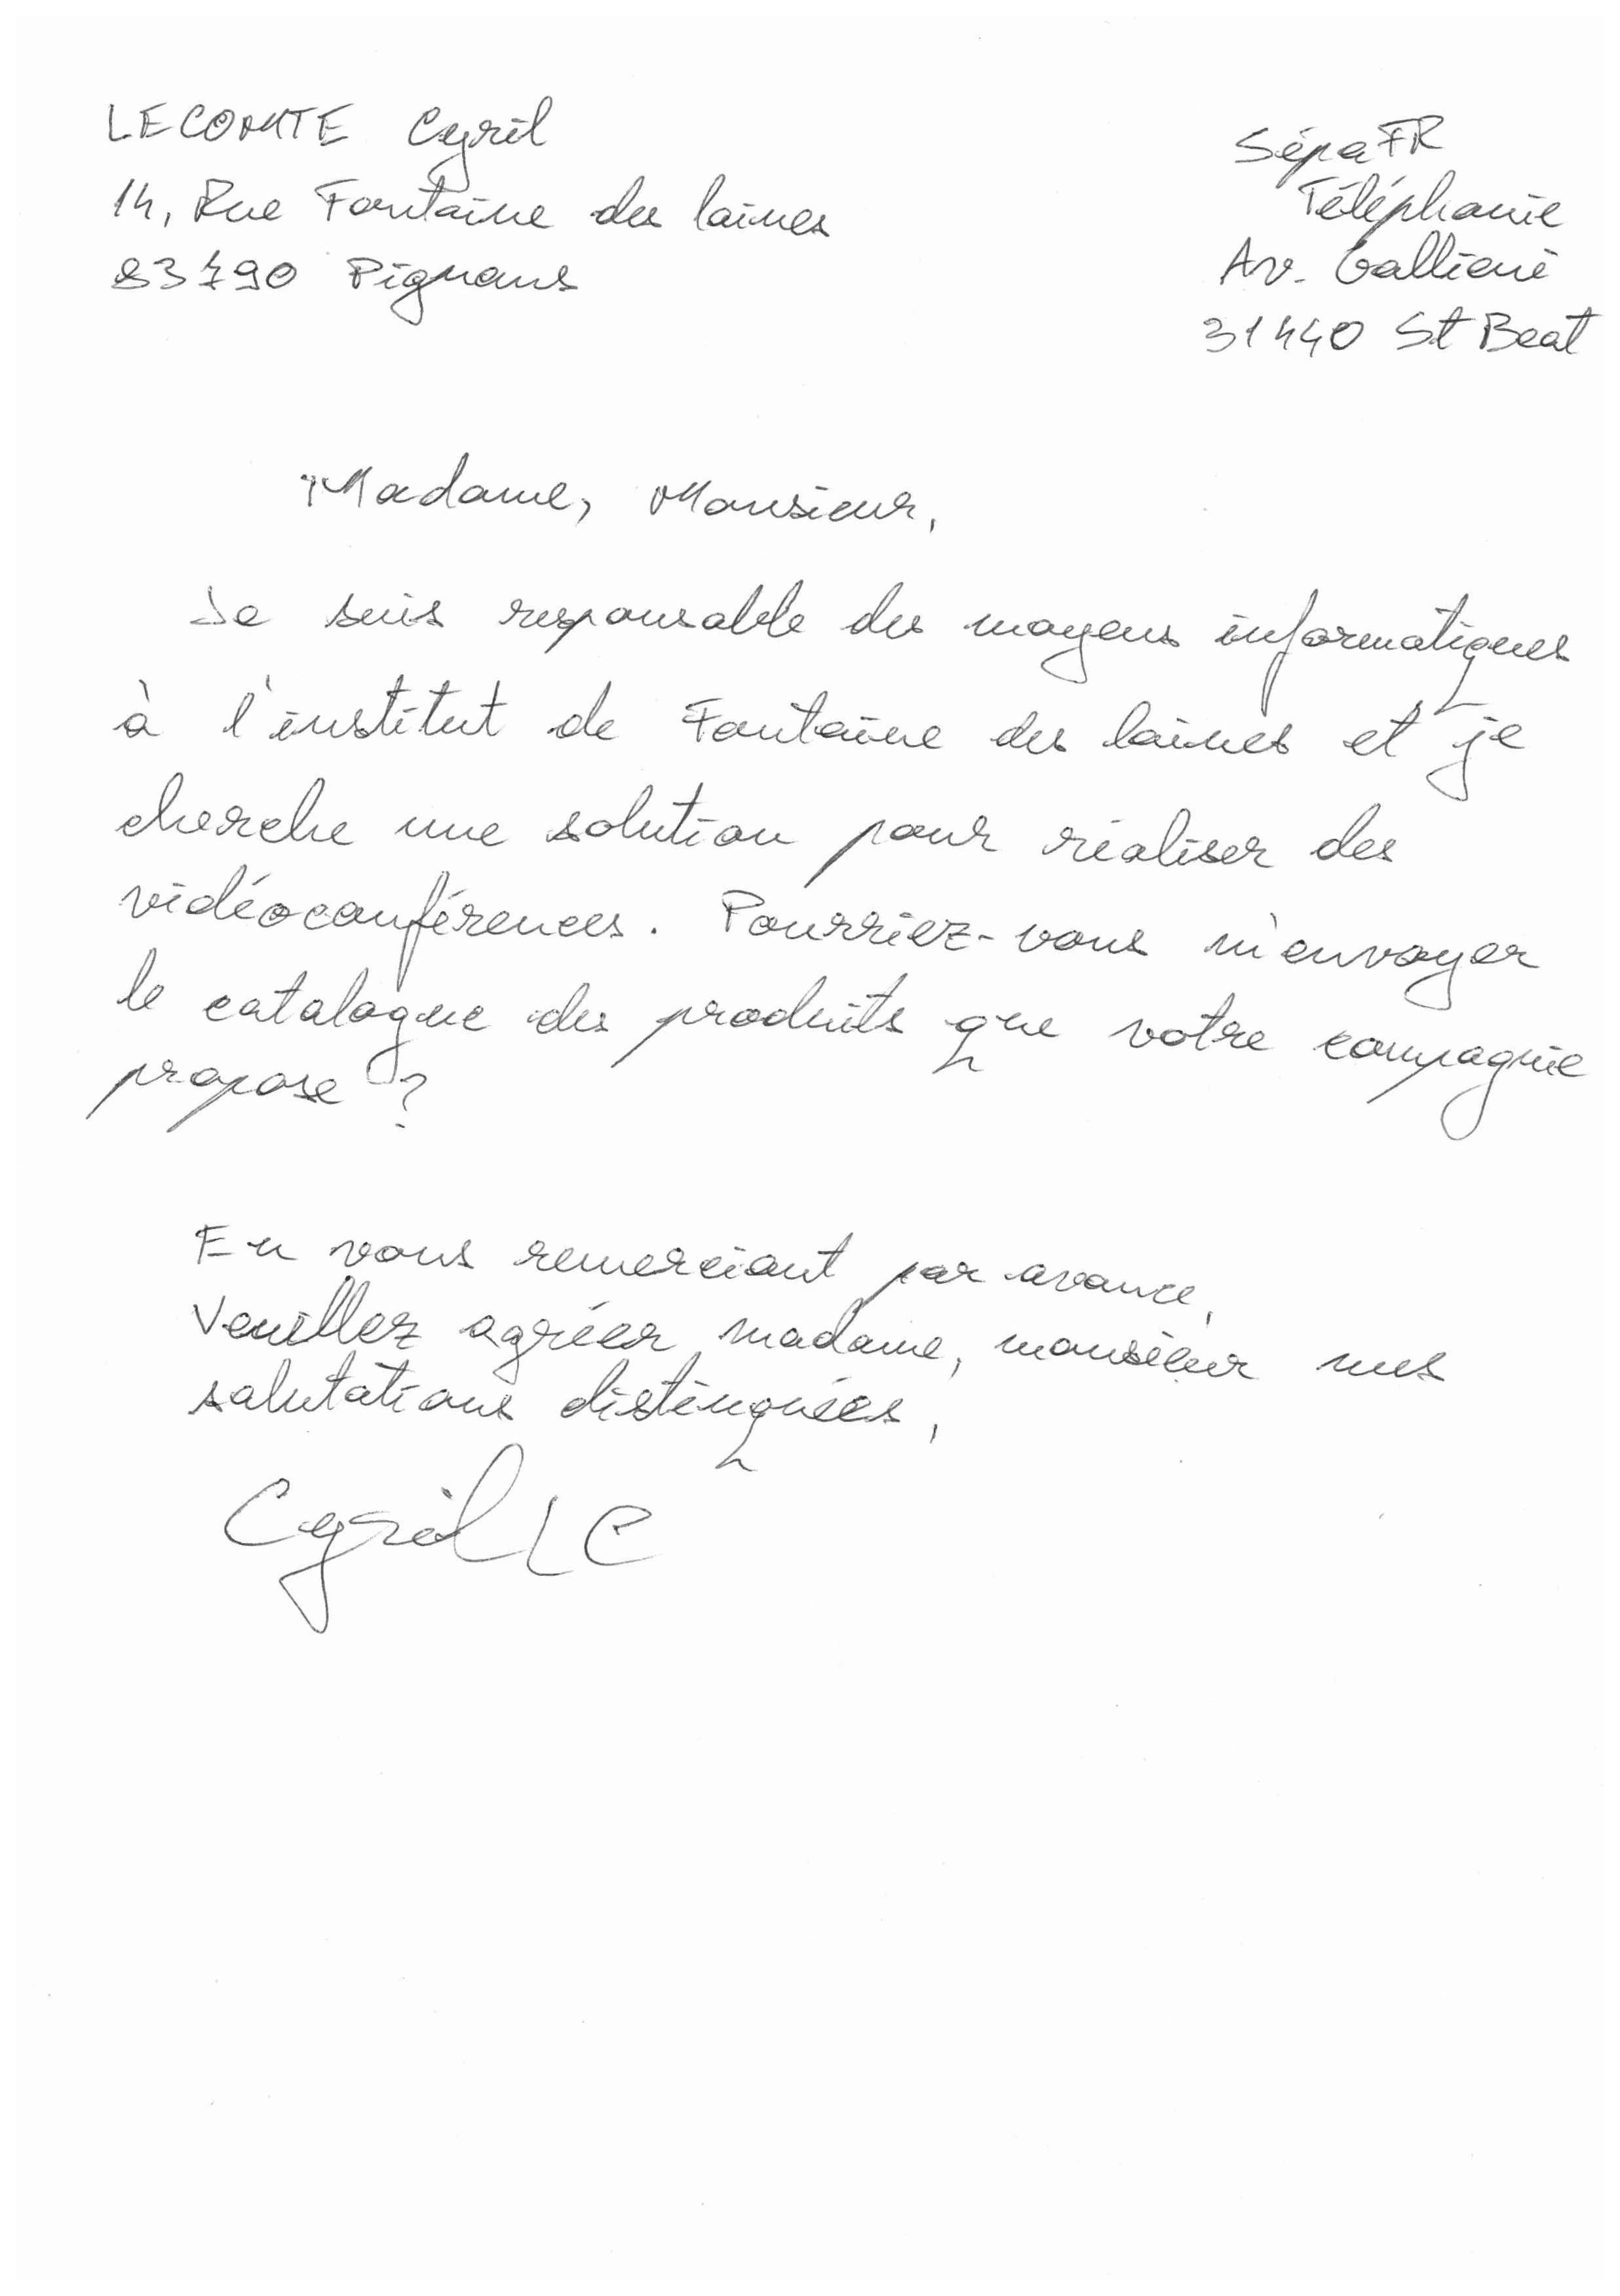 LECOMTE Cyril
14, Rue Fontaine des laines
83790 Pignans
SépaFR
Téléphonie
Av. Gallieni
31440 St Beat
Madame, Monsieur,
Je suis responsable des moyens informatiques
à l'institut de Fontaine des laines et je
cherche une solution pour réaliser des
vidéoconférences. Pourriez-vous m'envoyer
le catalogue des produits que votre compagnie
propose ?
En vous remerciant par avance,
Veuillez agréer madame, monsieur mes
salutations distinguées,
Cyril LC